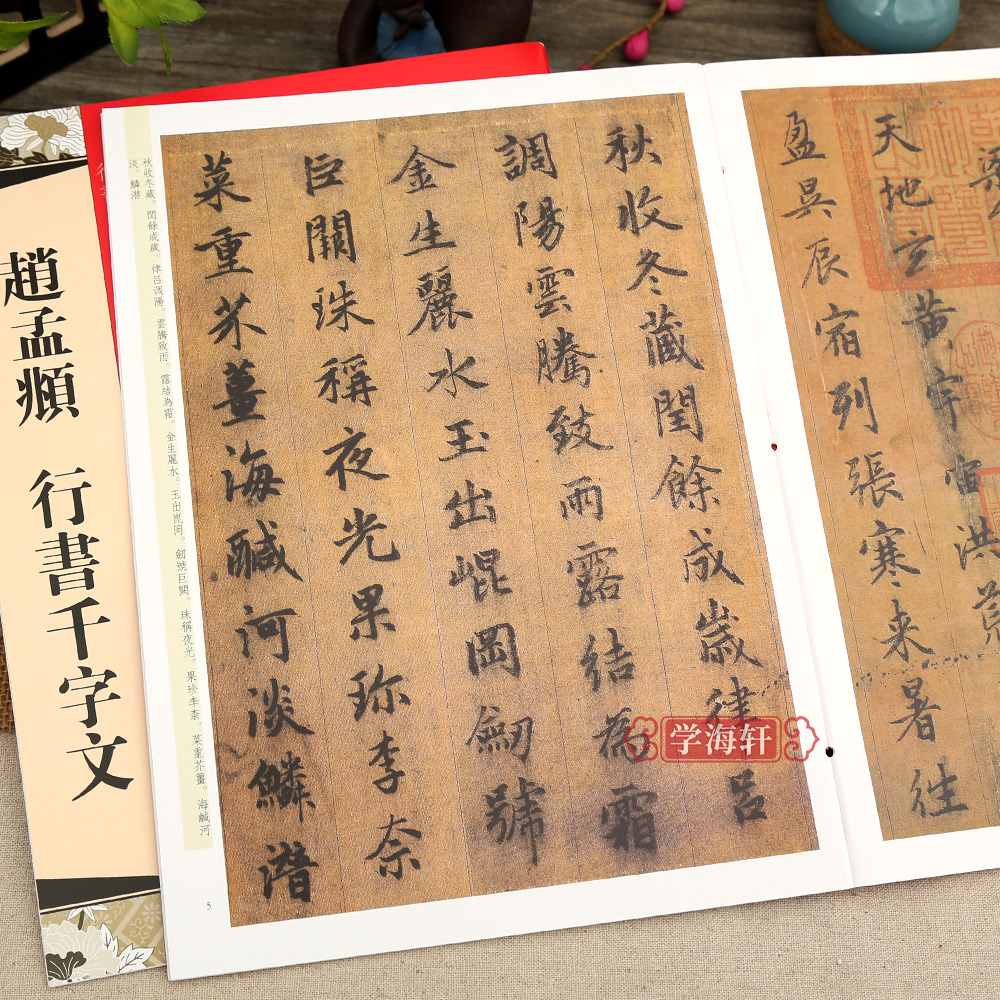 趙孟頫 行書千字文
天地玄黃宇宙洪荒
盈昃辰宿列張寒来暑往
秋收冬藏閏餘成歲律呂
調陽雲騰致雨露結為霜
金生麗水玉出崐岡劒號
巨闕珠稱夜光果珎李柰
菜重芥薑海醎河淡鱗潛
秋收冬藏。閏餘成歲。律呂調陽。雲騰致雨。露結為霜。金生麗水。玉出崑岡。劍號巨闕。珠稱夜光。果珍李柰。菜重芥薑。海鹹河
淡。鱗潜
5
学海轩